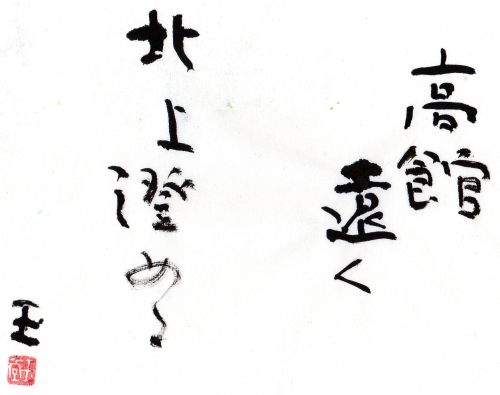 高館
遠く
北上澄める